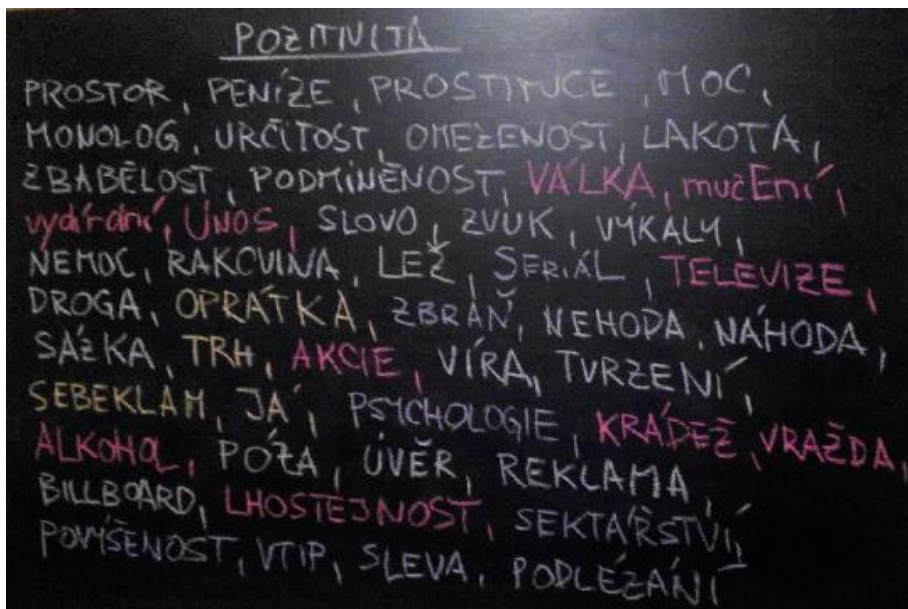 POZITIVITA
PROSTOR, PENÍZE, PROSTITUCE, MOC,
MONOLOG, URČITOST, OMEZENOST, LAKOTA,
ZBABĚLOST, PODMÍNĚNOST, VÁLKA, mučEní,
vydírání, ÚNOS, SLOVO, ZVUK, VÝKALY,
NEMOC, RAKOVINA, LEŽ, SERIÁL, TELEVIZE,
DROGA, OPRÁTKA, ZBRAŇ, NEHODA, NÁHODA,
SÁZKA, TRH, AKCIE, VÍRA, TVRZENÍ,
SEBEKLAM, JÁ, PSYCHOLOGIE, KRÁDEŽ, VRAŽDA,
ALKOHOL, PÓZA, ÚVĚR, REKLAMA,
BILLBOARD, LHOSTEJNOST, SEKTÁŘSTVÍ,
POVÝŠENOST, VTIP, SLEVA, PODLÉZÁNÍ